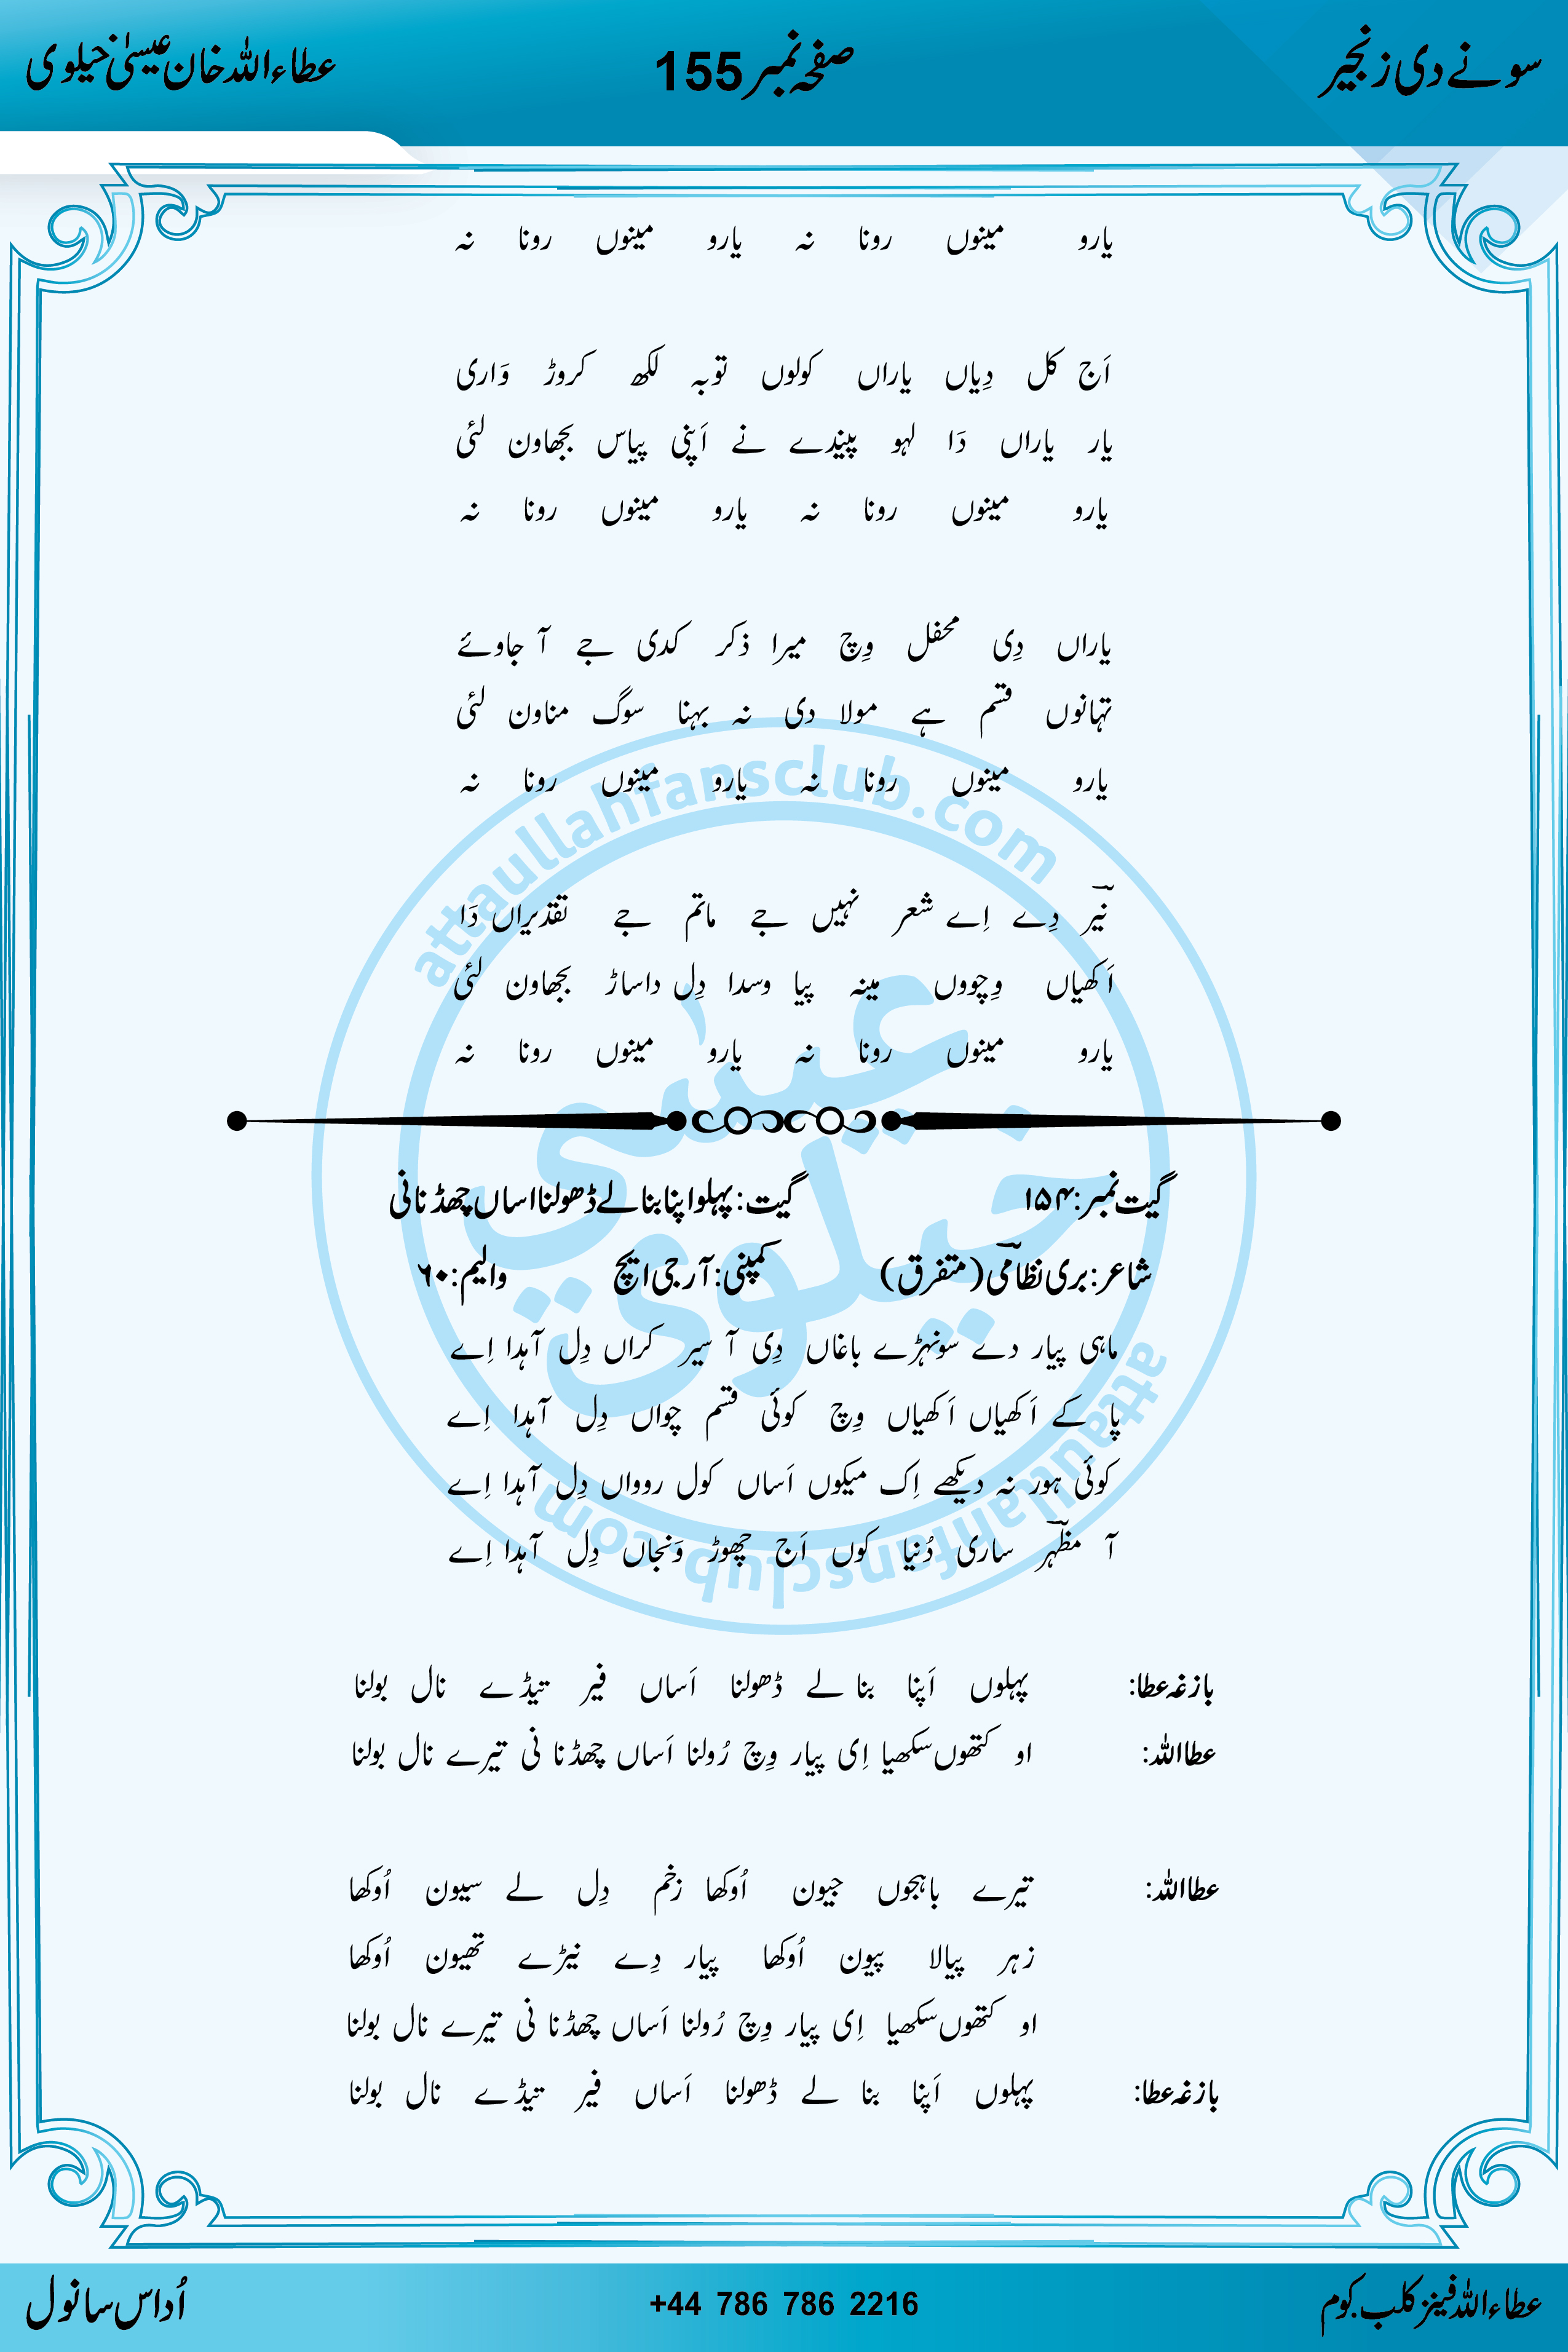 سونے دی زنجیر صفحہ نمبر 155 عطاء اللہ خان عیسیٰ خیلوی
یارو مینوں رونا نہ یارو مینوں رونا نہ
اَج کل دِیاں یاراں کولوں توبہ لکھ کروڑ وَاری
یار یاراں دَا لہو پیندے نے اَپنی پیاس بجھاون لئی
یارو مینوں رونا نہ یارو مینوں رونا نہ
یاراں دِی محفل وِچ میرا ذکر کدی جے آ جاوئے
تہانوں قسم ہے مولا دی نہ بہنا سوگ مناون لئی
یارو مینوں رونا نہ یارو مینوں رونا نہ
نیرؔ دِے اِے شعر نہیں جے ماتم جے تقدیراں دَا
اَکھیاں وِچووں مینہ پیا وسدا دِل داساڑ بجھاون لئی
یارو مینوں رونا نہ یارو مینوں رونا نہ
گیت نمبر: ۱۵۴ گیت: پہلو اپنا بنا لے ڈھولنا اساں چھڈ نا نی
شاعر: بری نظامیؔ (متفرق) کمپنی: آر جی ایچ والیم: ۶۰
ماہی پیار دے سونہڑے باغاں دِی آ سیر کراں دِل آہدا اِے
پا کے اَکھیاں اَکھیاں وِچ کوئی قسم چواں دِل آہدا اِے
کوئی ہور نہ دیکھے اِک میکوں اَساں کول روواں دِل آہدا اِے
آ مظہرؔ ساری دُنیا کوں اَج چھوڑ وَنجاں دِل آہدا اِے
بازغہ عطا: پہلوں اَپنا بنا لے ڈھولنا اَساں فیر تیڈے نال بولنا
عطا اللہ: او کتھوں سکھیا اِی پیار وِچ رُولنا اَساں چھڈ نا نی تیرے نال بولنا
عطا اللہ: تیرے باہجوں جیون اُوکھا زخم دِل لے سیون اُوکھا
زہر پیالا پیون اُوکھا پیار دِے نیڑے تھیون اُوکھا
او کتھوں سکھیا اِی پیار وِچ رُولنا اَساں چھڈ نا نی تیرے نال بولنا
بازغہ عطا: پہلوں اَپنا بنا لے ڈھولنا اَساں فیر تیڈے نال بولنا
عطاء اللہ فینز کلب۔کوم +44 786 786 2216 اُداس سانول
attaullahfansclub.com
عیسیٰ خیلوی
attaullahfansclub.com